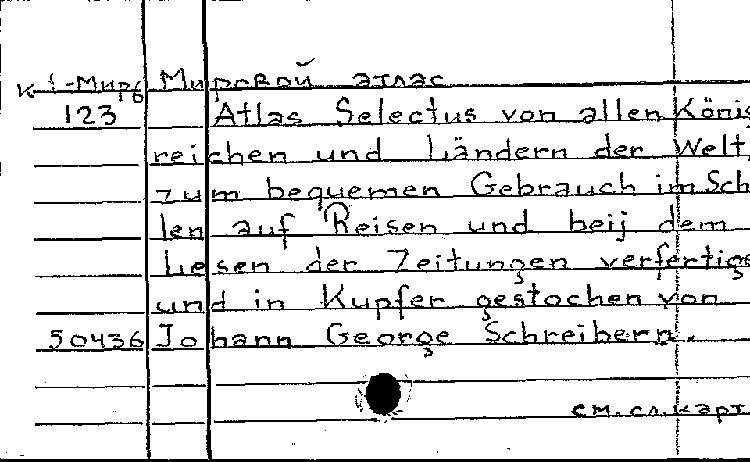 К 1-Мир6 Мировой атлас
123 Atlas Selectus von allen König
reichen und Ländern der Welt,
zum bequemen Gebrauch in Sch
len auf Reisen und beij dem
Lesen der Zeitungen verfertige
und in Kupfer gestochen von
50436 Johann George Schreibern.
см. сл. карт